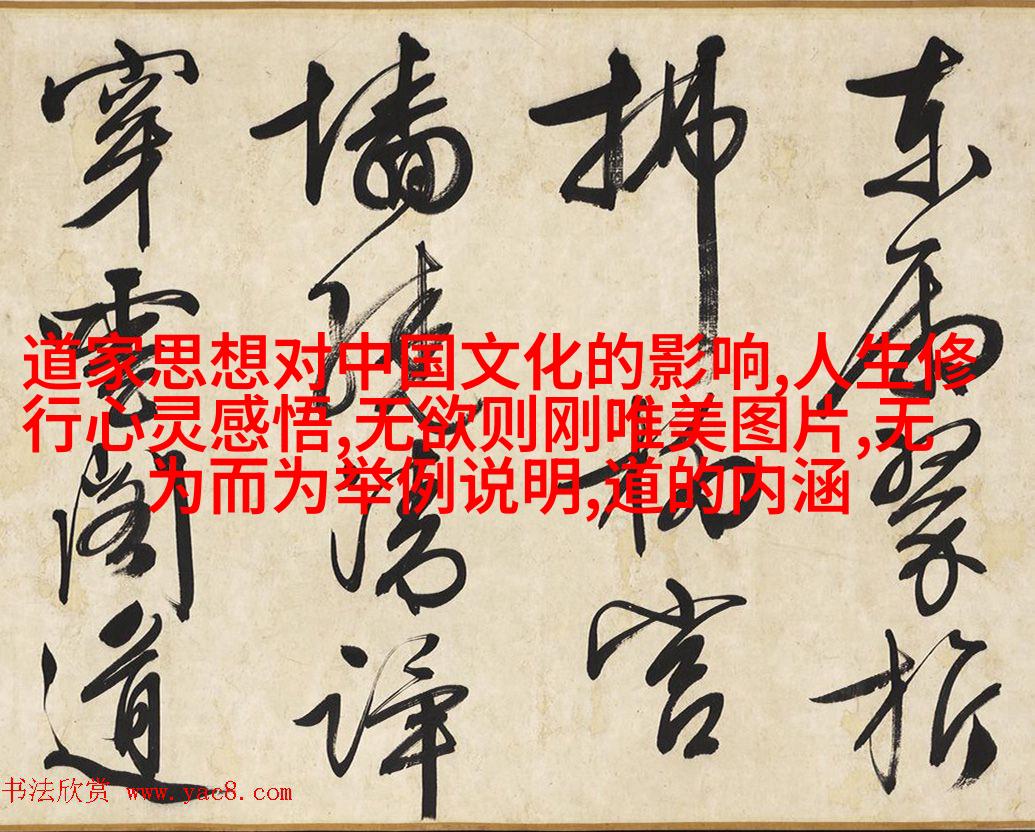 道家思想对中国文化的影响,人生修
行心灵感悟,无欲则刚唯美图片,无
为而为举例说明,道的内涵
東 翠
拂柳
墙
穿雲閣道
书法欣赏 www.yac8.com